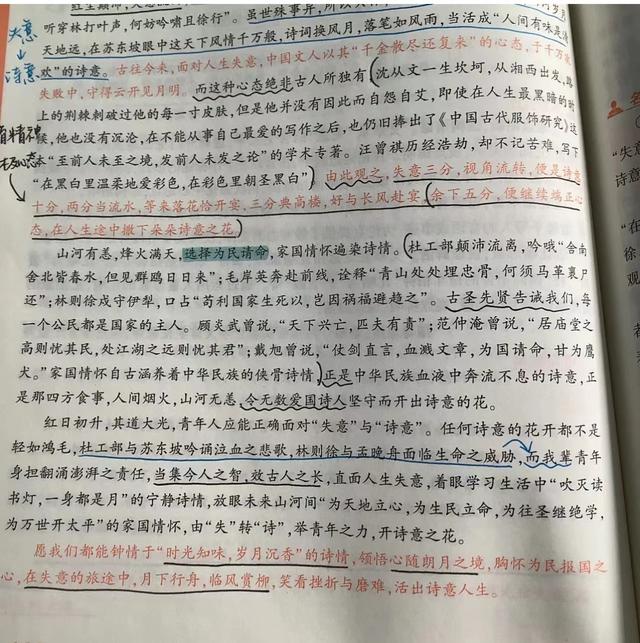 听穿林打叶声，何妨吟啸且徐行”。虽世殊事异，
天地远，在苏东坡眼中这天下风情千万般，诗词换风月，落笔如风雨，当活成“人间有味是清
欢”的诗意。古往今来，面对人生失意，中国文人以其“千金散尽还复来”的心态，于千万次
失败中，守得云开见月明。而这种心态绝非古人所独有(沈从文一生坎坷，从湘西出发，路
上的荆棘刺破过他的每一寸皮肤，但是他并没有因此而自怨自艾，即使在人生最黑暗的时
候，他也没有沉沦，在不能从事自己最爱的写作之后，也仍旧捧出了《中国古代服饰研究》这
本“至前人未至之境，发前人未发之论”的学术专著。汪曾祺历经浩劫，却不记苦难，写下
“在黑白里温柔地爱彩色，在彩色里朝圣黑白”)由此观之，失意三分，视角流转，便是诗意
十分，两分当流水，等来落花恰开宴，三分典高楼，好与长风赴宴(余下五分，便继续端正心
态，在人生途中撒下朵朵诗意之花。)
山河有恙，烽火满天，选择为民请命，家国情怀遍染诗情。(杜工部颠沛流离，吟哦“舍南
舍北皆春水，但见群鸥日日来”；毛岸英奔赴前线，诠释“青山处处埋忠骨，何须马革裹尸
还”；林则徐戍守伊犁，口占“苟利国家生死以，岂因祸福避趋之”。古圣先贤告诫我们，每
一个公民都是国家的主人。顾炎武曾说，“天下兴亡，匹夫有责”；范仲淹曾说，“居庙堂之
高则忧其民，处江湖之远则忧其君”；戴旭曾说，“仗剑直言，血溅文章，为国请命，甘为鹰
犬。”家国情怀自古涵养着中华民族的侠骨诗情)正是中华民族血液中奔流不息的诗意，正
是那四方食事，人间烟火，山河无恙，令无数爱国诗人坚守而开出诗意的花。
红日初升，其道大光，青年人应能正确面对“失意”与“诗意”。任何诗意的花开都不是
轻如鸿毛，杜工部与苏东坡吟诵泣血之悲歌，林则徐与孟晚舟面临生命之威胁，而我辈青年
身担翻涌澎湃之责任，当集今人之智，效古人之长，直面人生失意，着眼学习生活中“吹灭读
书灯，一身都是月”的宁静诗情，放眼未来山河间“为天地立心，为生民立命，为往圣继绝学，
为万世开太平”的家国情怀，由“失”转“诗”，举青年之力，开诗意之花。
愿我们都能钟情于“时光知味，岁月沉香”的诗情，领悟心随朗月之境，胸怀为民报国之
心，在失意的旅途中，月下行舟，临风赏柳，笑看挫折与磨难，活出诗意人生。
失意
↓
诗意